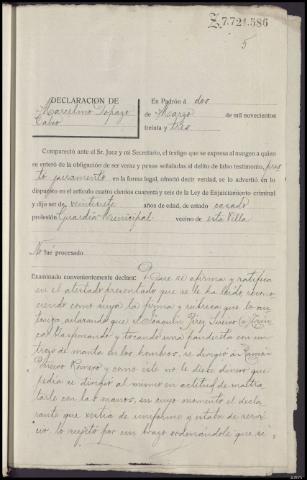 Z.7.724.586
5
DECLARACION DE
Marcelino Topazo
Calvo
En Padrón á dos
de Marzo de mil novecientos
treinta y tres
Compareció ante el Sr. Juez y mi Secretario, el testigo que se expresa al margen a quien
se enteró de la obligación de ser veraz y penas señaladas al delito de falso testimonio, pres
tó juramento en la forma legal, ofreció decir verdad, se lo advertió en lo
dispuesto en el artículo cuatro cientos cuarenta y seis de la Ley de Enjuiciamiento criminal
y dijo ser de veintisiete años de edad, de estado casado
profesión Guardia Municipal vecino de esta Villa
No fué procesado.
Examinado convenientemente declara: Que se afirma y ratifica
en el atestado presentado que se le ha leido recono
ciendo como suya la firma y rúbrica que lo au
toriza, aclarando que el Joaquín Pérez
y tocando una pandereta con un
trozo de manta en los hombros, se dirigió á Ramón
Romero y como este no le diese dinero que
pedia se dirigió al mismo en actitud de maltra
tarle con las manos, en cuyo momento el decla
rante que vestia de uniforme y estaba de servi
cio lo sujetó por un brazo ordenándole que se